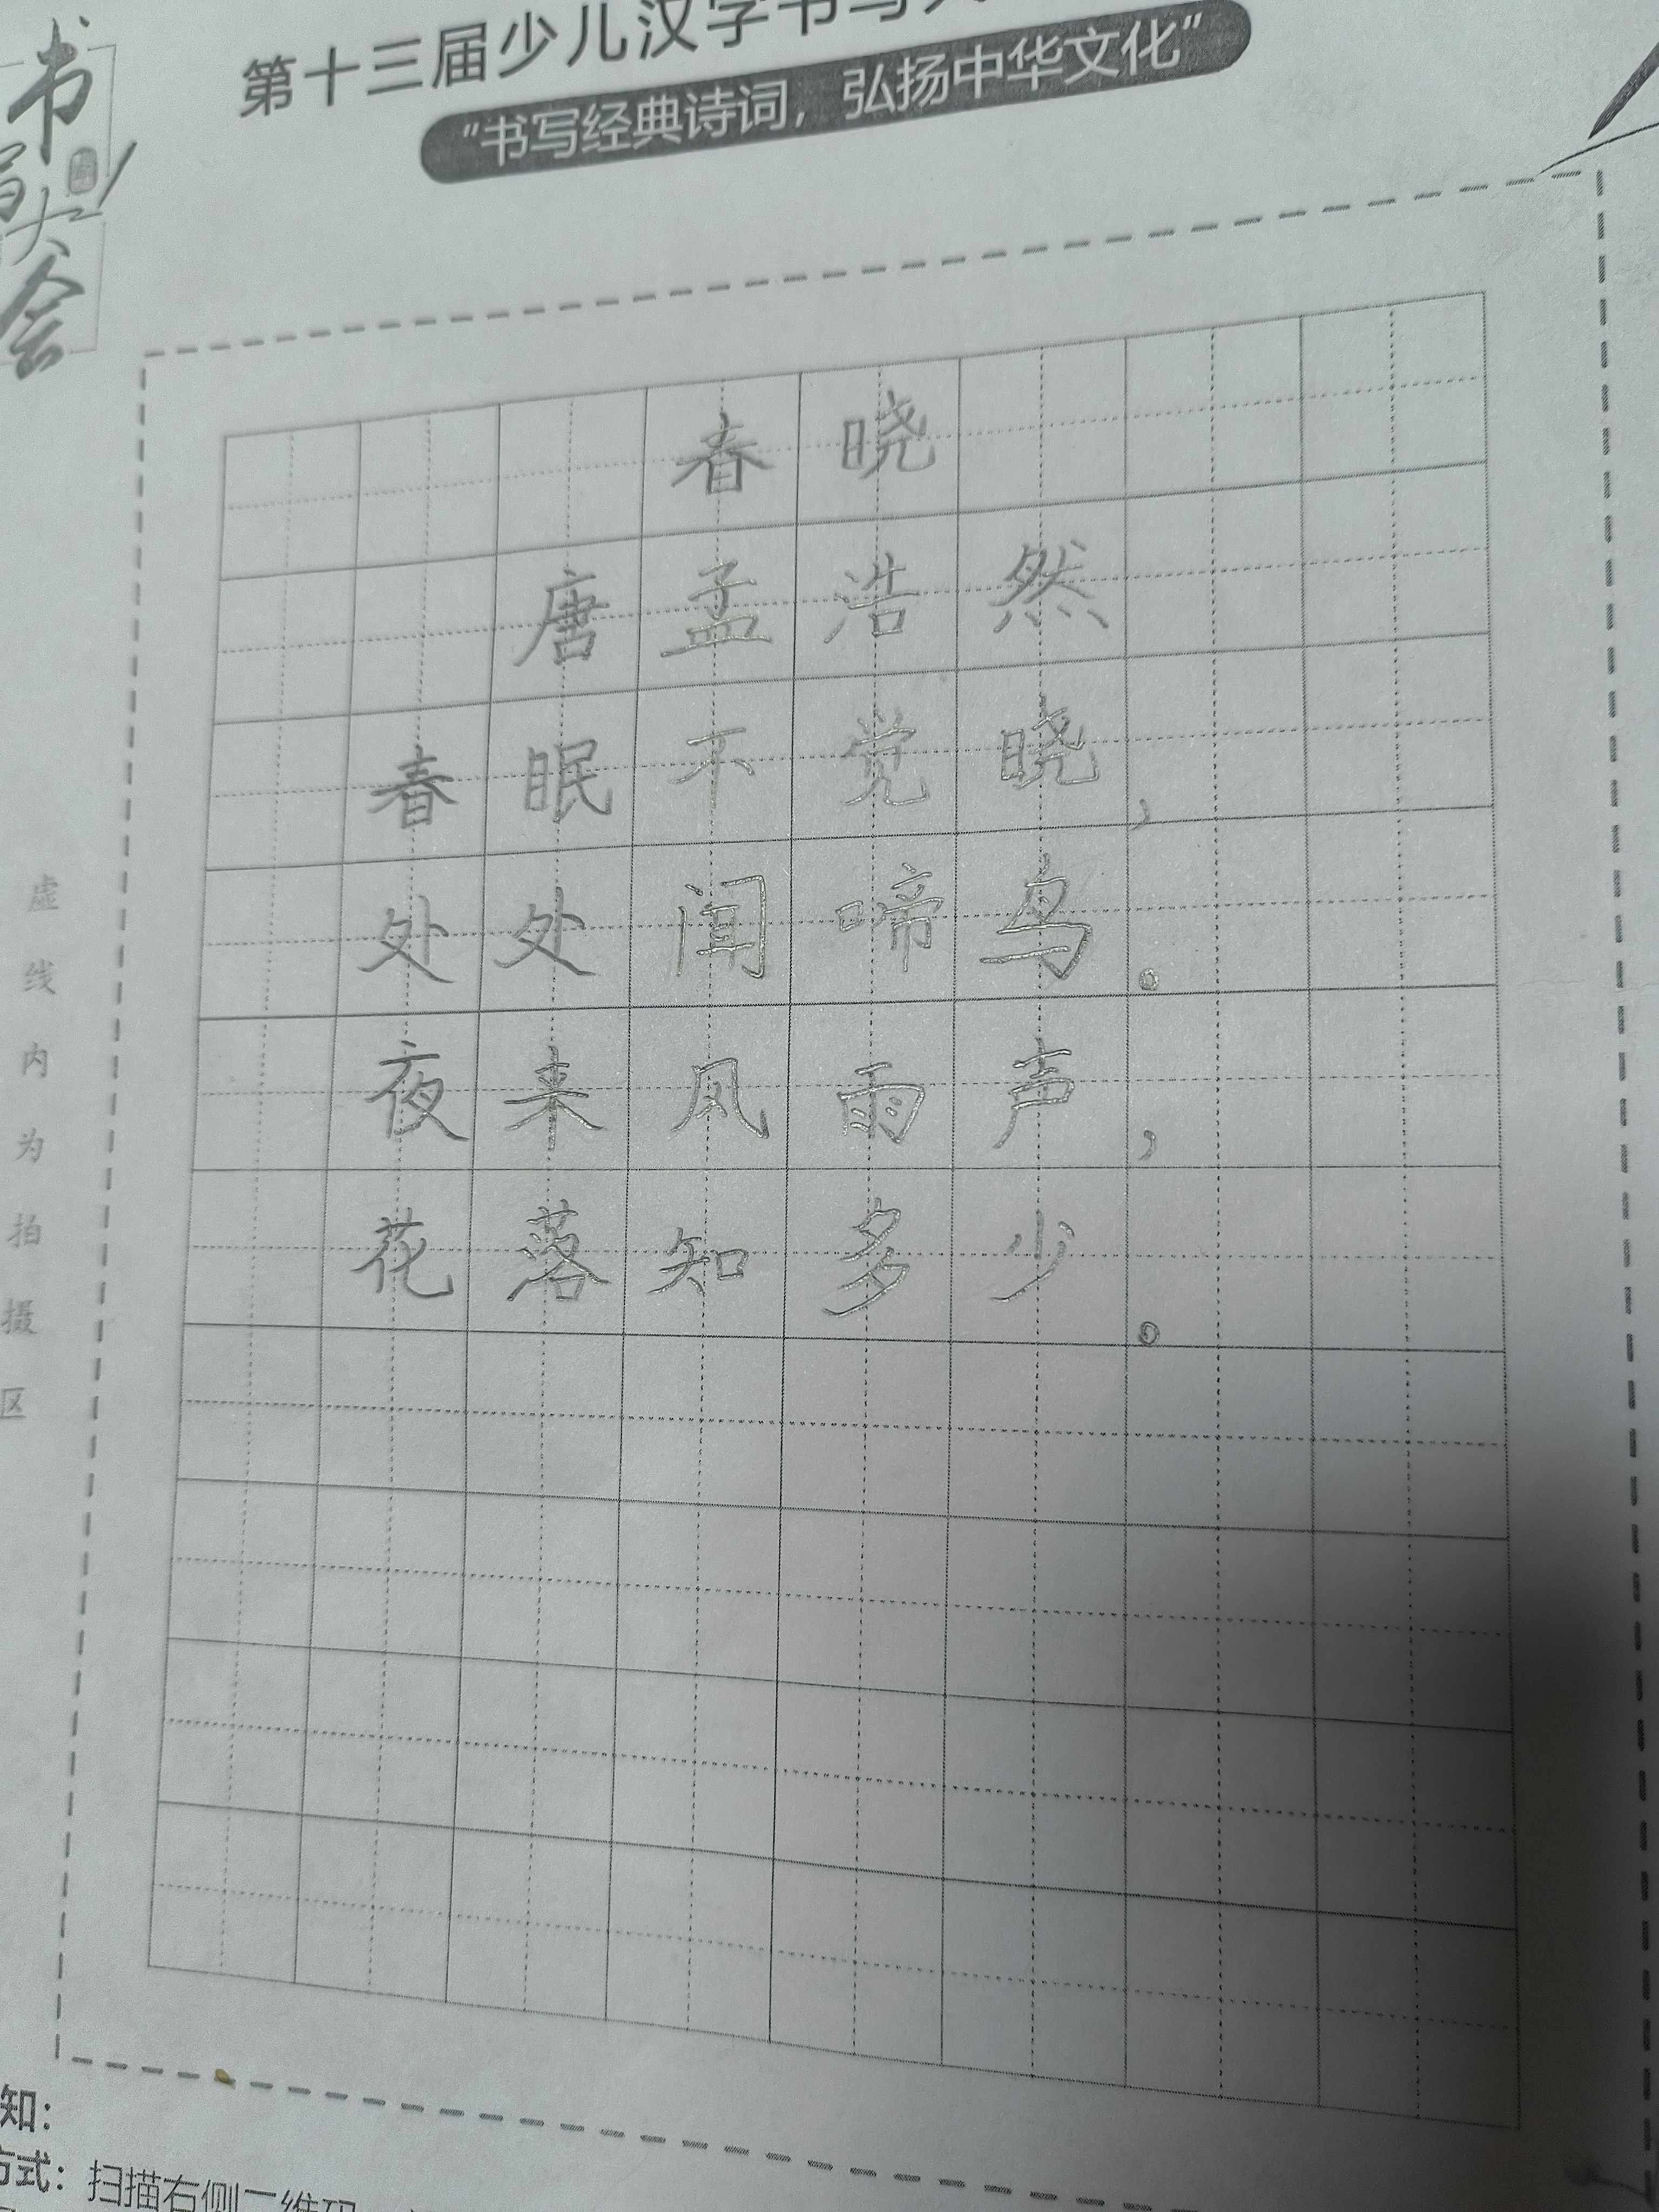 书写大会
第十三届少儿汉字书写大
"书写经典诗词，弘扬中华文化"
春晓
唐孟浩然
春眠不觉晓，
处处闻啼鸟。
夜来风雨声，
花落知多少。
虚线内为拍摄区
知：
方式：扫描右侧二维码